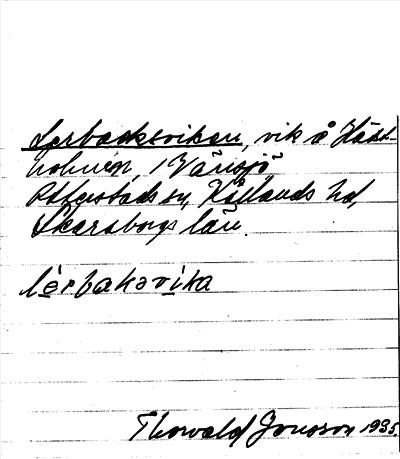 Lerbacksviken, vik å Häst-
holmen, i Vänsjö
Otterstads sn, Kållands hd,
Skaraborgs län.
lèrbakəvika
Thorvald Jonsson 1935.